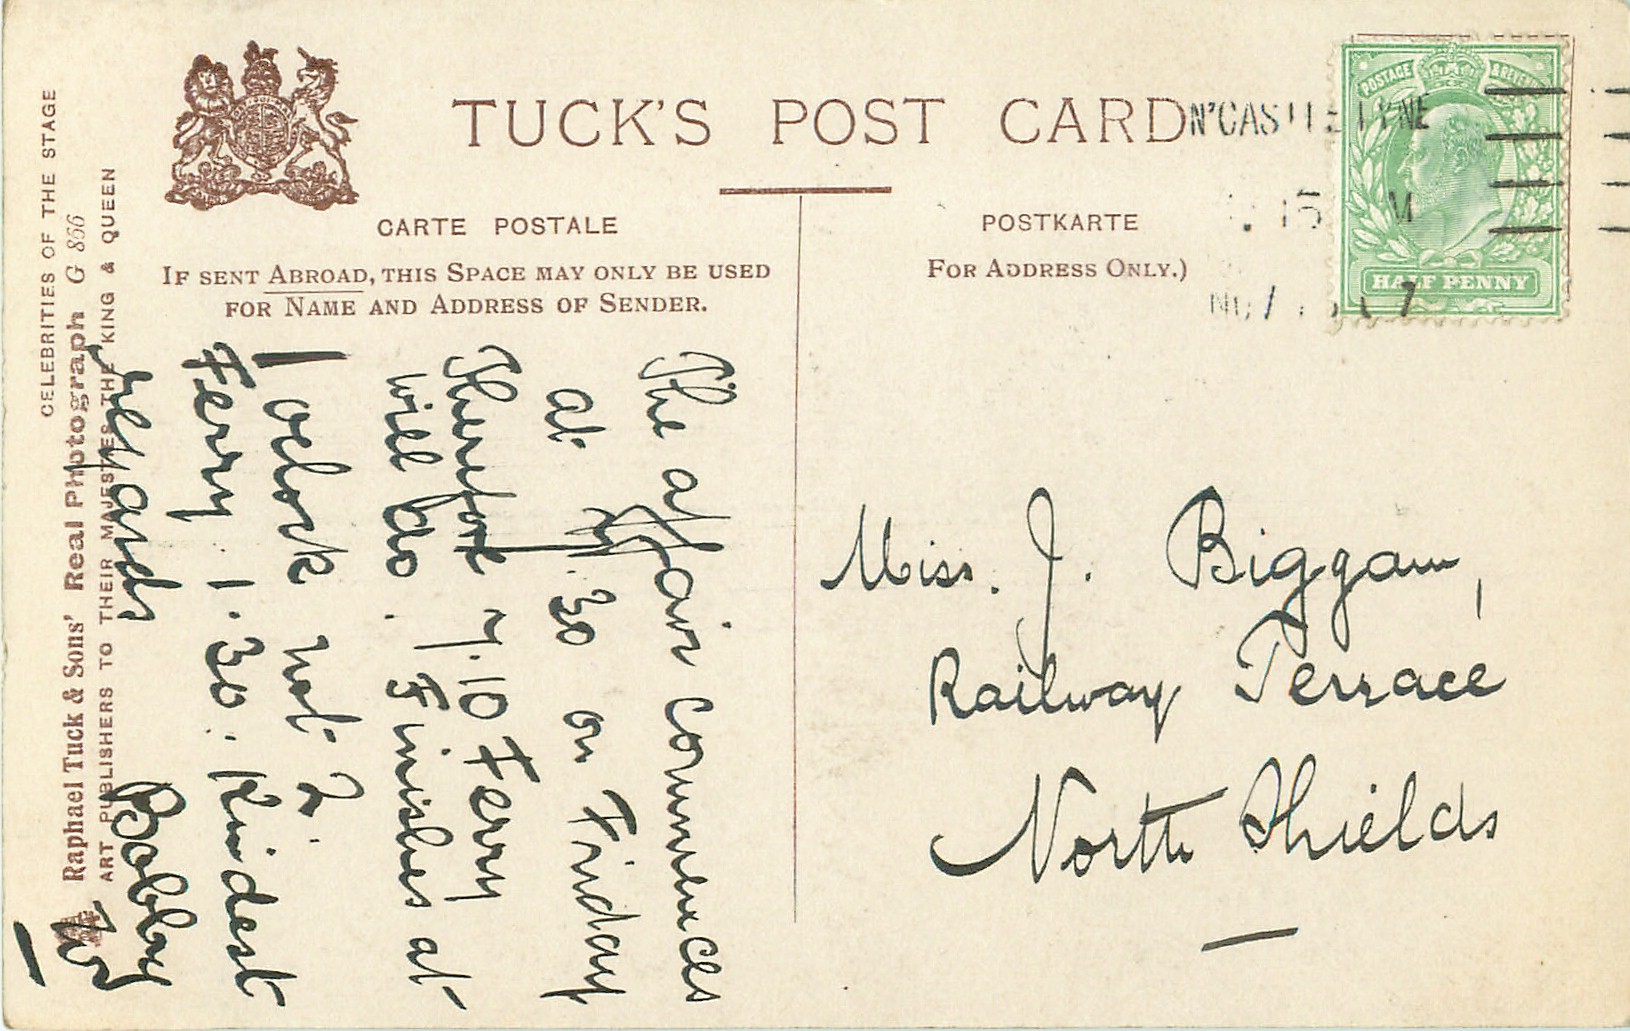 TUCK'S POST CARD
CARTE POSTALE
POSTKARTE
IF SENT ABROAD, THIS SPACE MAY ONLY BE USED
FOR NAME AND ADDRESS OF SENDER.
FOR ADDRESS ONLY.)
N'CASTLE TYNE
15 M
7
POSTAGE & REVENUE
HALF PENNY
CELEBRITIES OF THE STAGE
Raphael Tuck & Sons' Real Photograph G 866
ART PUBLISHERS TO THEIR MAJESTIES THE KING & QUEEN
The affair commences
at 7.30 on Friday
Therefore 7.10 Ferry
will do. Finishes at
1 oclock not 2.
Ferry 1.30. Kindest
regards Bobby
Miss. J. Biggam,
Railway Terrace
North Shields